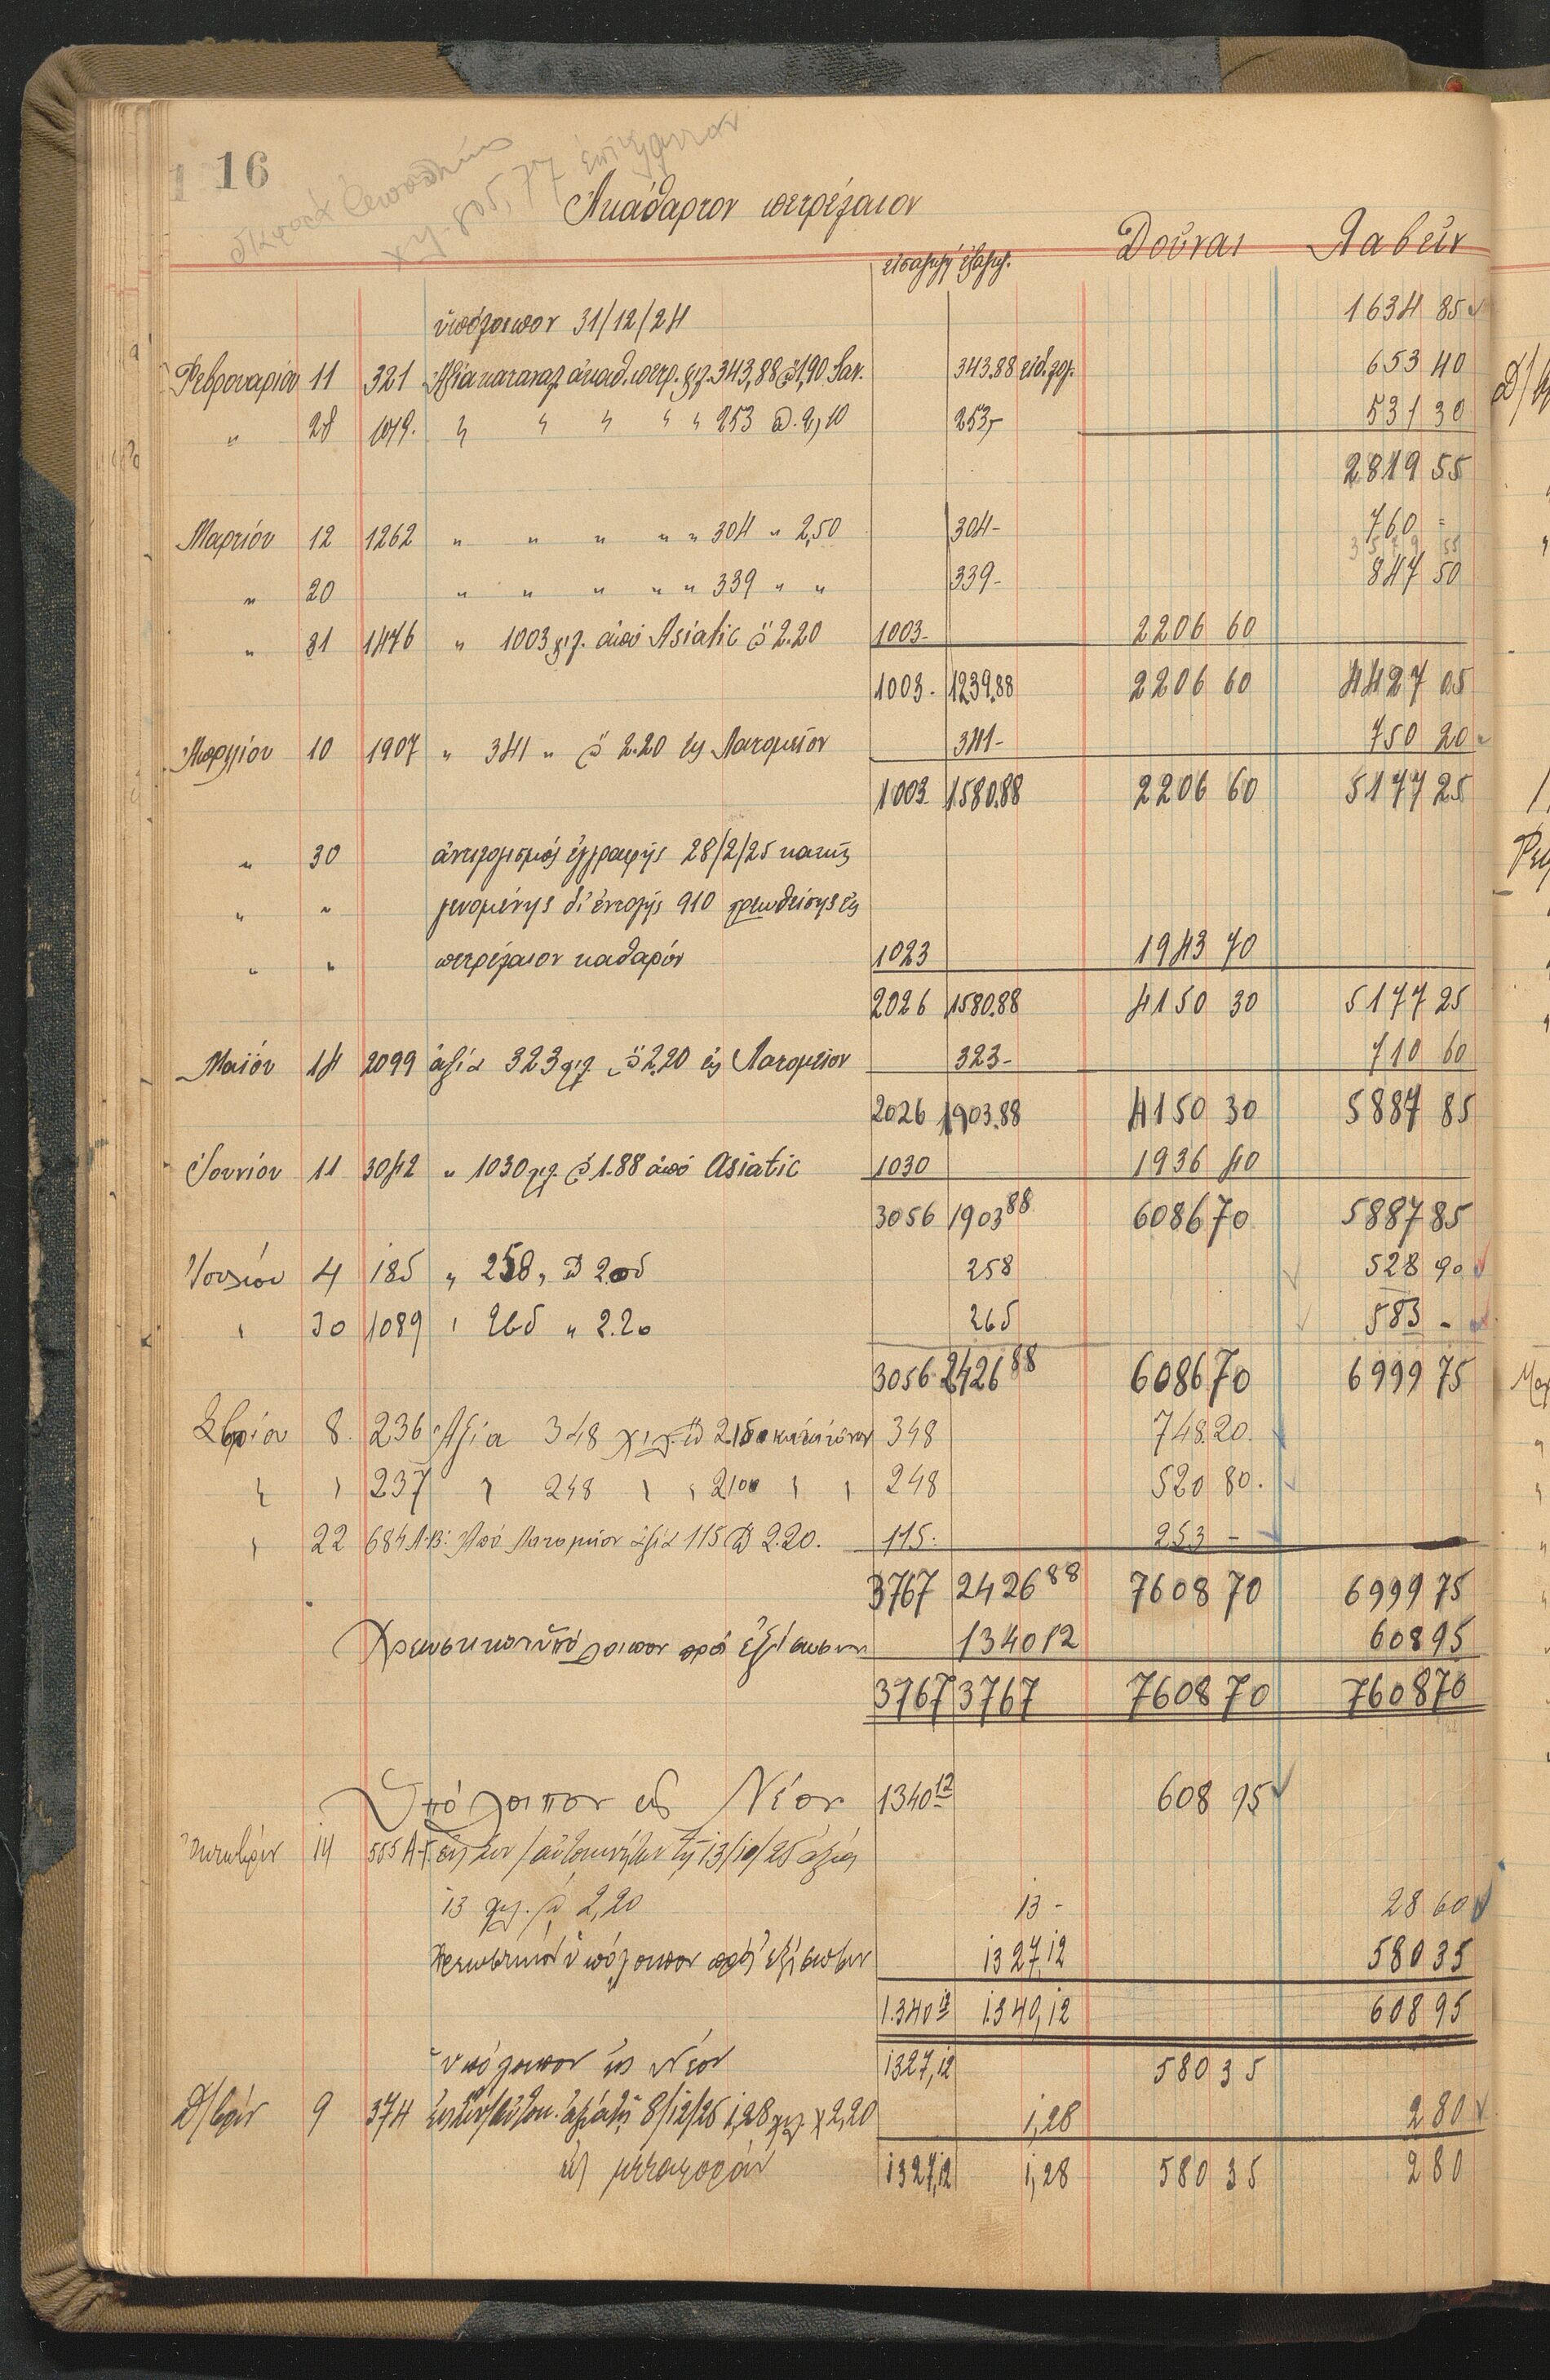 16
χιλ. 805,77
Ἀκάθαρτον πετρέλαιον
εἰσαγωγή ἐξαγωγ. Δοῦναι Λαβεῖν
ὑπόλοιπον 31/12/24 1634 85
Φεβρουαρίου 11 321 Ἀξία καταναλ. ἀκαθ. πετρ. χιλ. 343,88 @ 1,90 343.88 653 40
" 28 1079. " " " " " 253 @. 2,10 253,- 531 30
2819 55
Μαρτίου 12 1262 " " " " " 304 " 2,50 304- 760 =
3579 55
" 20 " " " " " 339 " " 339- 847 50
" 31 1476 " 1003 χιλ. ἀπό Asiatic @ 2.20 1003- 2206 60
1003. 1239.88 2206 60 4427 05
Ἀπριλίου 10 1907 " 341 " @ 2.20 εἰς Λατομεῖον 341- 750 20
1003 1580.88 2206 60 5177 25
" 30 ἀντιλογισμός ἐγγραφῆς 28/2/25 κακῶς
" " γενομένης δι' ἐντολῆς 910 χρεωθείσης εἰς
" " πετρέλαιον καθαρόν 1023 1943 70
2026 1580.88 4150 30 5177 25
Μαΐου 14 2099 ἀξία 323 χιλ. @ 2.20 εἰς Λατομεῖον 323- 710 60
2026 1903.88 4150 30 5887 85
Ἰουνίου 11 3042 " 1030 χιλ. @ 1.88 ἀπό Asiatic 1030 1936 40
3056 1903 88 6086 70 5887 85
Ἰουλίου 4 185 " 258 " @ 2.05 258 528 90
" 30 1089 " 265 " 2.20 265 583 -
3056 2426 88 6086 70 6999 75
8 236 Ἀξία 348 χιλ. @ 2.15 348 748.20.
" " 237 " 248 " " 2,10 " " 248 520 80.
" 22 684 Α.Β. Ἀπό Λατομεῖον ἀξία 115 @ 2.20. 115. 253 -
3767 2426 88 7608 70 6999 75
Χρεωστικόν ὑπόλοιπον πρός ἐξίσωσιν 1340 12 608 95
3767 3767 7608 70 7608 70
Ὑπόλοιπον εἰς Νέον 1340 12 608 95
14 555 Α-Γ. 13/10/25 ἀξία
13 χιλ. @ 2,20 13 - 28 60
Χρεωστικόν ὑπόλοιπον πρός ἐξίσωσιν 1327,12 580 35
1.340 12 1.340,12 608 95
ὑπόλοιπον εἰς Νέον 1327,12 580 35
Δ/βρίου 9 374 8/12/25 1,28 χιλ. × 2,20 1,28 2 80
εἰς μεταφοράν 1327,12 1,28 580 35 2 80